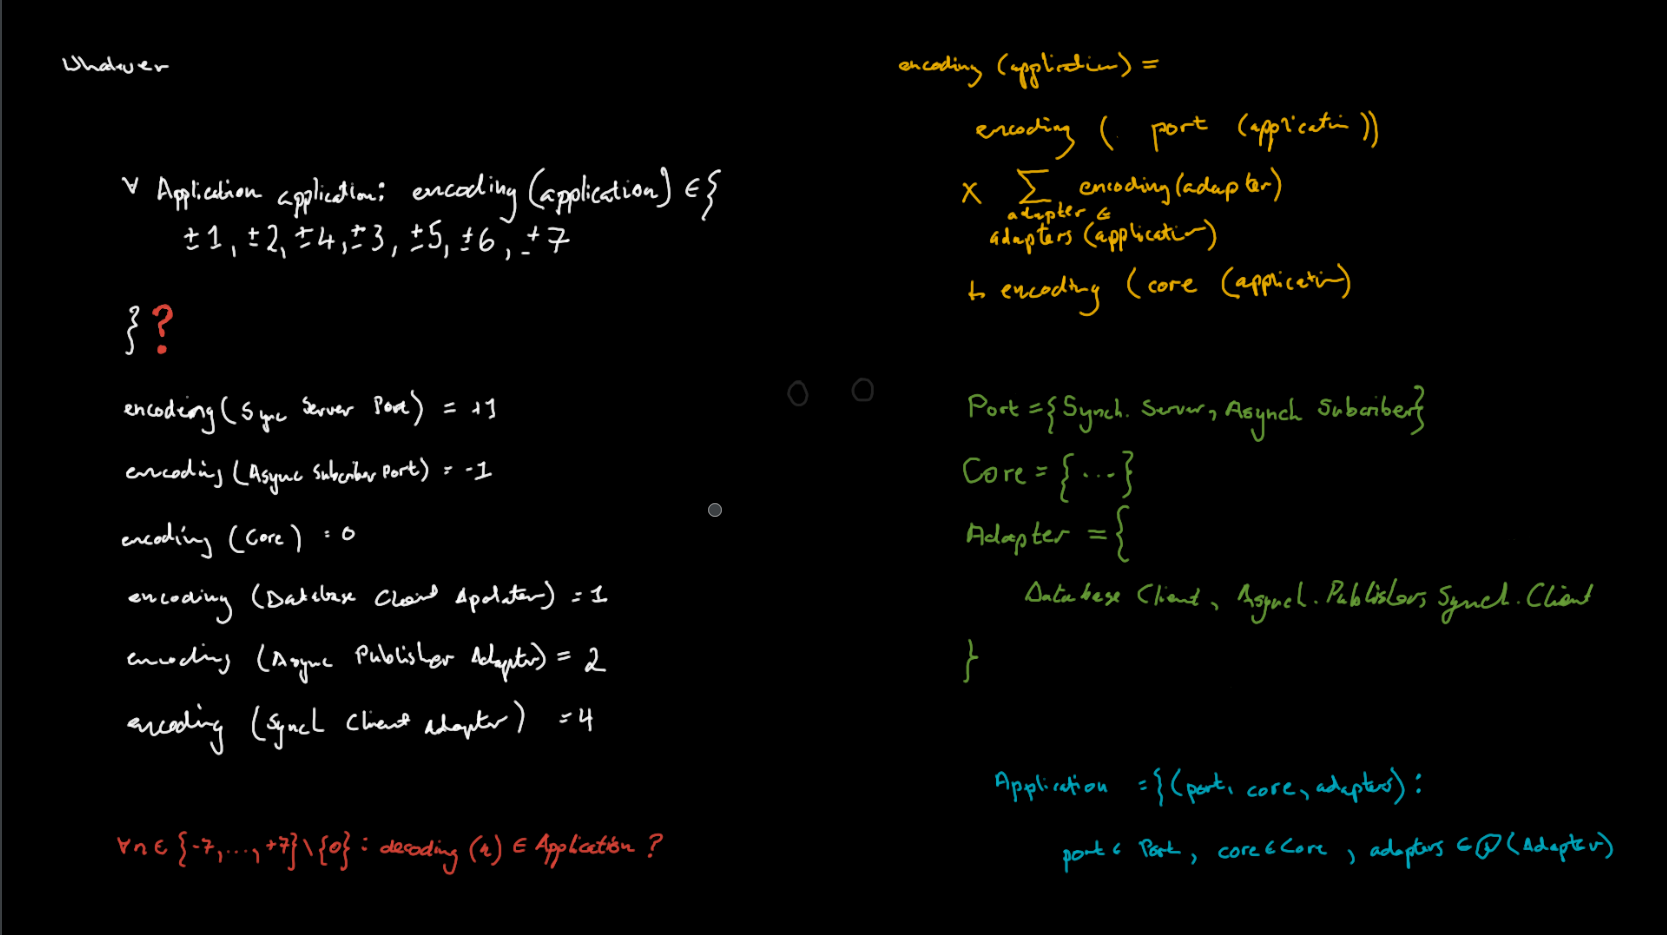 Whatever
∀ Application application: encoding (application) ∈ {
±1, ±2, ±4, ±3, ±5, ±6, ±7
} ?
encoding (Sync Server Port) = +1
encoding (Async Subscriber Port) = -1
encoding (Core) = 0
encoding (Database Client Apdater) = 1
encoding (Async Publisher Adapter) = 2
encoding (Synch Client adapter) = 4
∀n ∈ {-7,...,+7} \ {0} : decoding (n) ∈ Application ?
encoding (application) =
encoding ( port (application))
× ∑ encoding (adapter)
adapter ∈
adapters (application)
+ encoding (core (application)
Port = {Synch. Server, Asynch Subcriber}
Core = {...}
Adapter = {
Database Client, Asynch. Publisher, Synch. Client
}
Application = {(port, core, adapters) :
port ∈ Port, core ∈ Core, adapters ∈ ℘(Adapter)